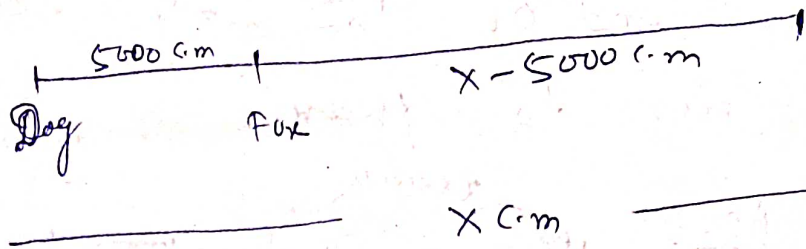 5000 c.m
X - 5000 c.m
Dog Fox
X c.m